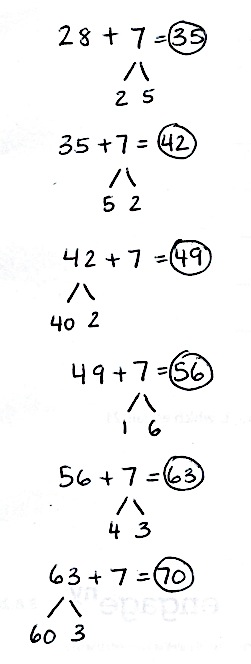 28 + 7 = 35
2 5
35 + 7 = 42
5 2
42 + 7 = 49
40 2
49 + 7 = 56
1 6
56 + 7 = 63
4 3
63 + 7 = 70
60 3